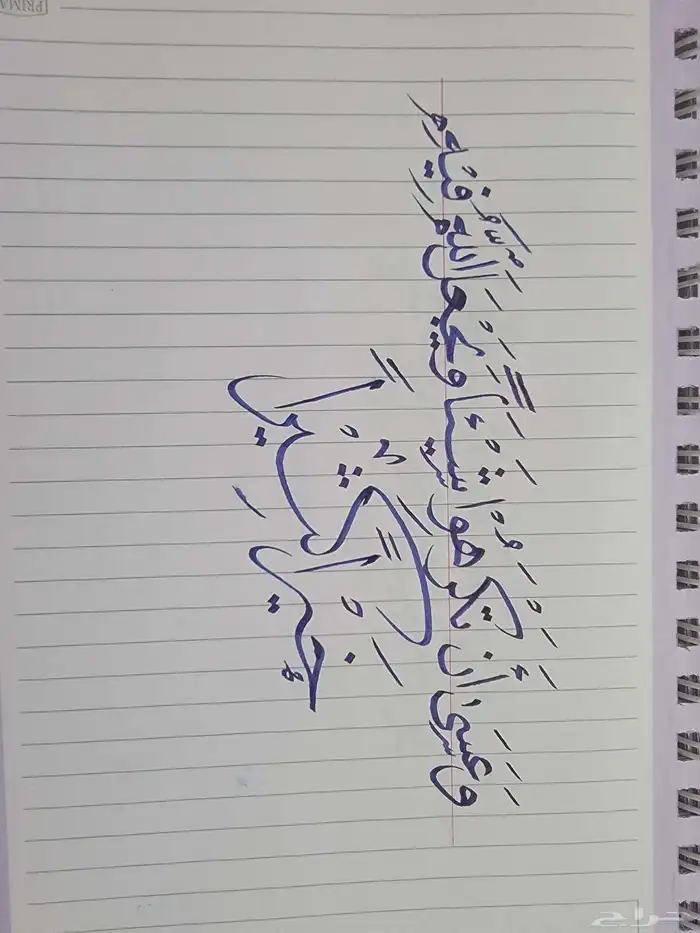 وَعَسَى أَنْ تَكْرَهُوا شَيْئًا وَيَجْعَلَ اللَّهُ فِيهِ
خَيْرًا كَثِيرًا
PRIMA
حراج